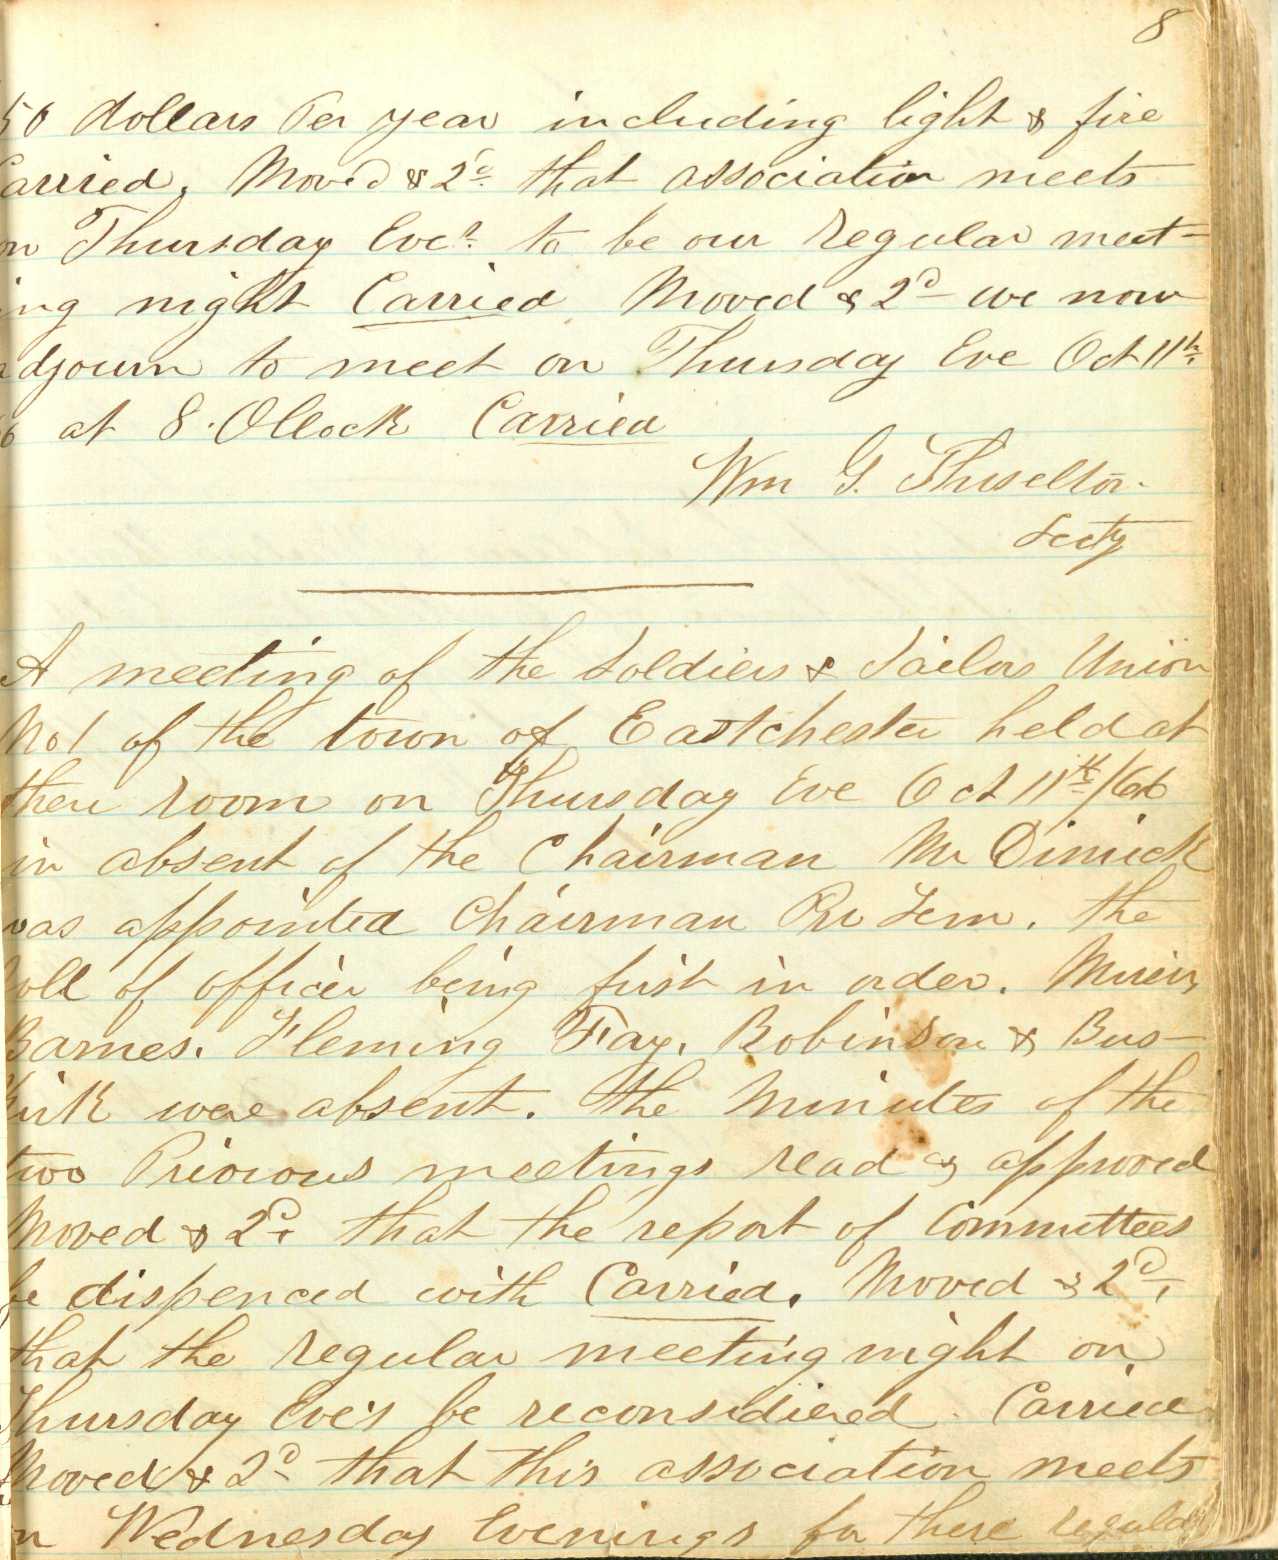 8
50 dollars Per year including light & fire
Carried, Moved & 2d that association meets
on Thursday Eves to be our regular meet-
ing night Carried Moved & 2d we now
adjourn to meet on Thursday Eve Oct 11th
66 at 8. OClock Carried
Wm G.
Secty
A meeting of the Soldiers & Sailors Union
No 1 of the town of Eastchester held at
there room on Thursday Eve Oct 11th/66
in absent of the Chairman Mr Dimick
was appointed Chairman Pro Tem. the
roll of officer being first in order.
Barnes. Fleming Fay. Robinson & Bus-
kirk were absent. The Minutes of the
two Privious meetings read & approved
Moved & 2d that the report of Committees
be dispenced with Carried. Moved & 2d,
that the regular meeting night on
Thursday Eve's be reconsidiered. Carried
Moved & 2d that this association meets
on Wednesday Evenings for there regular